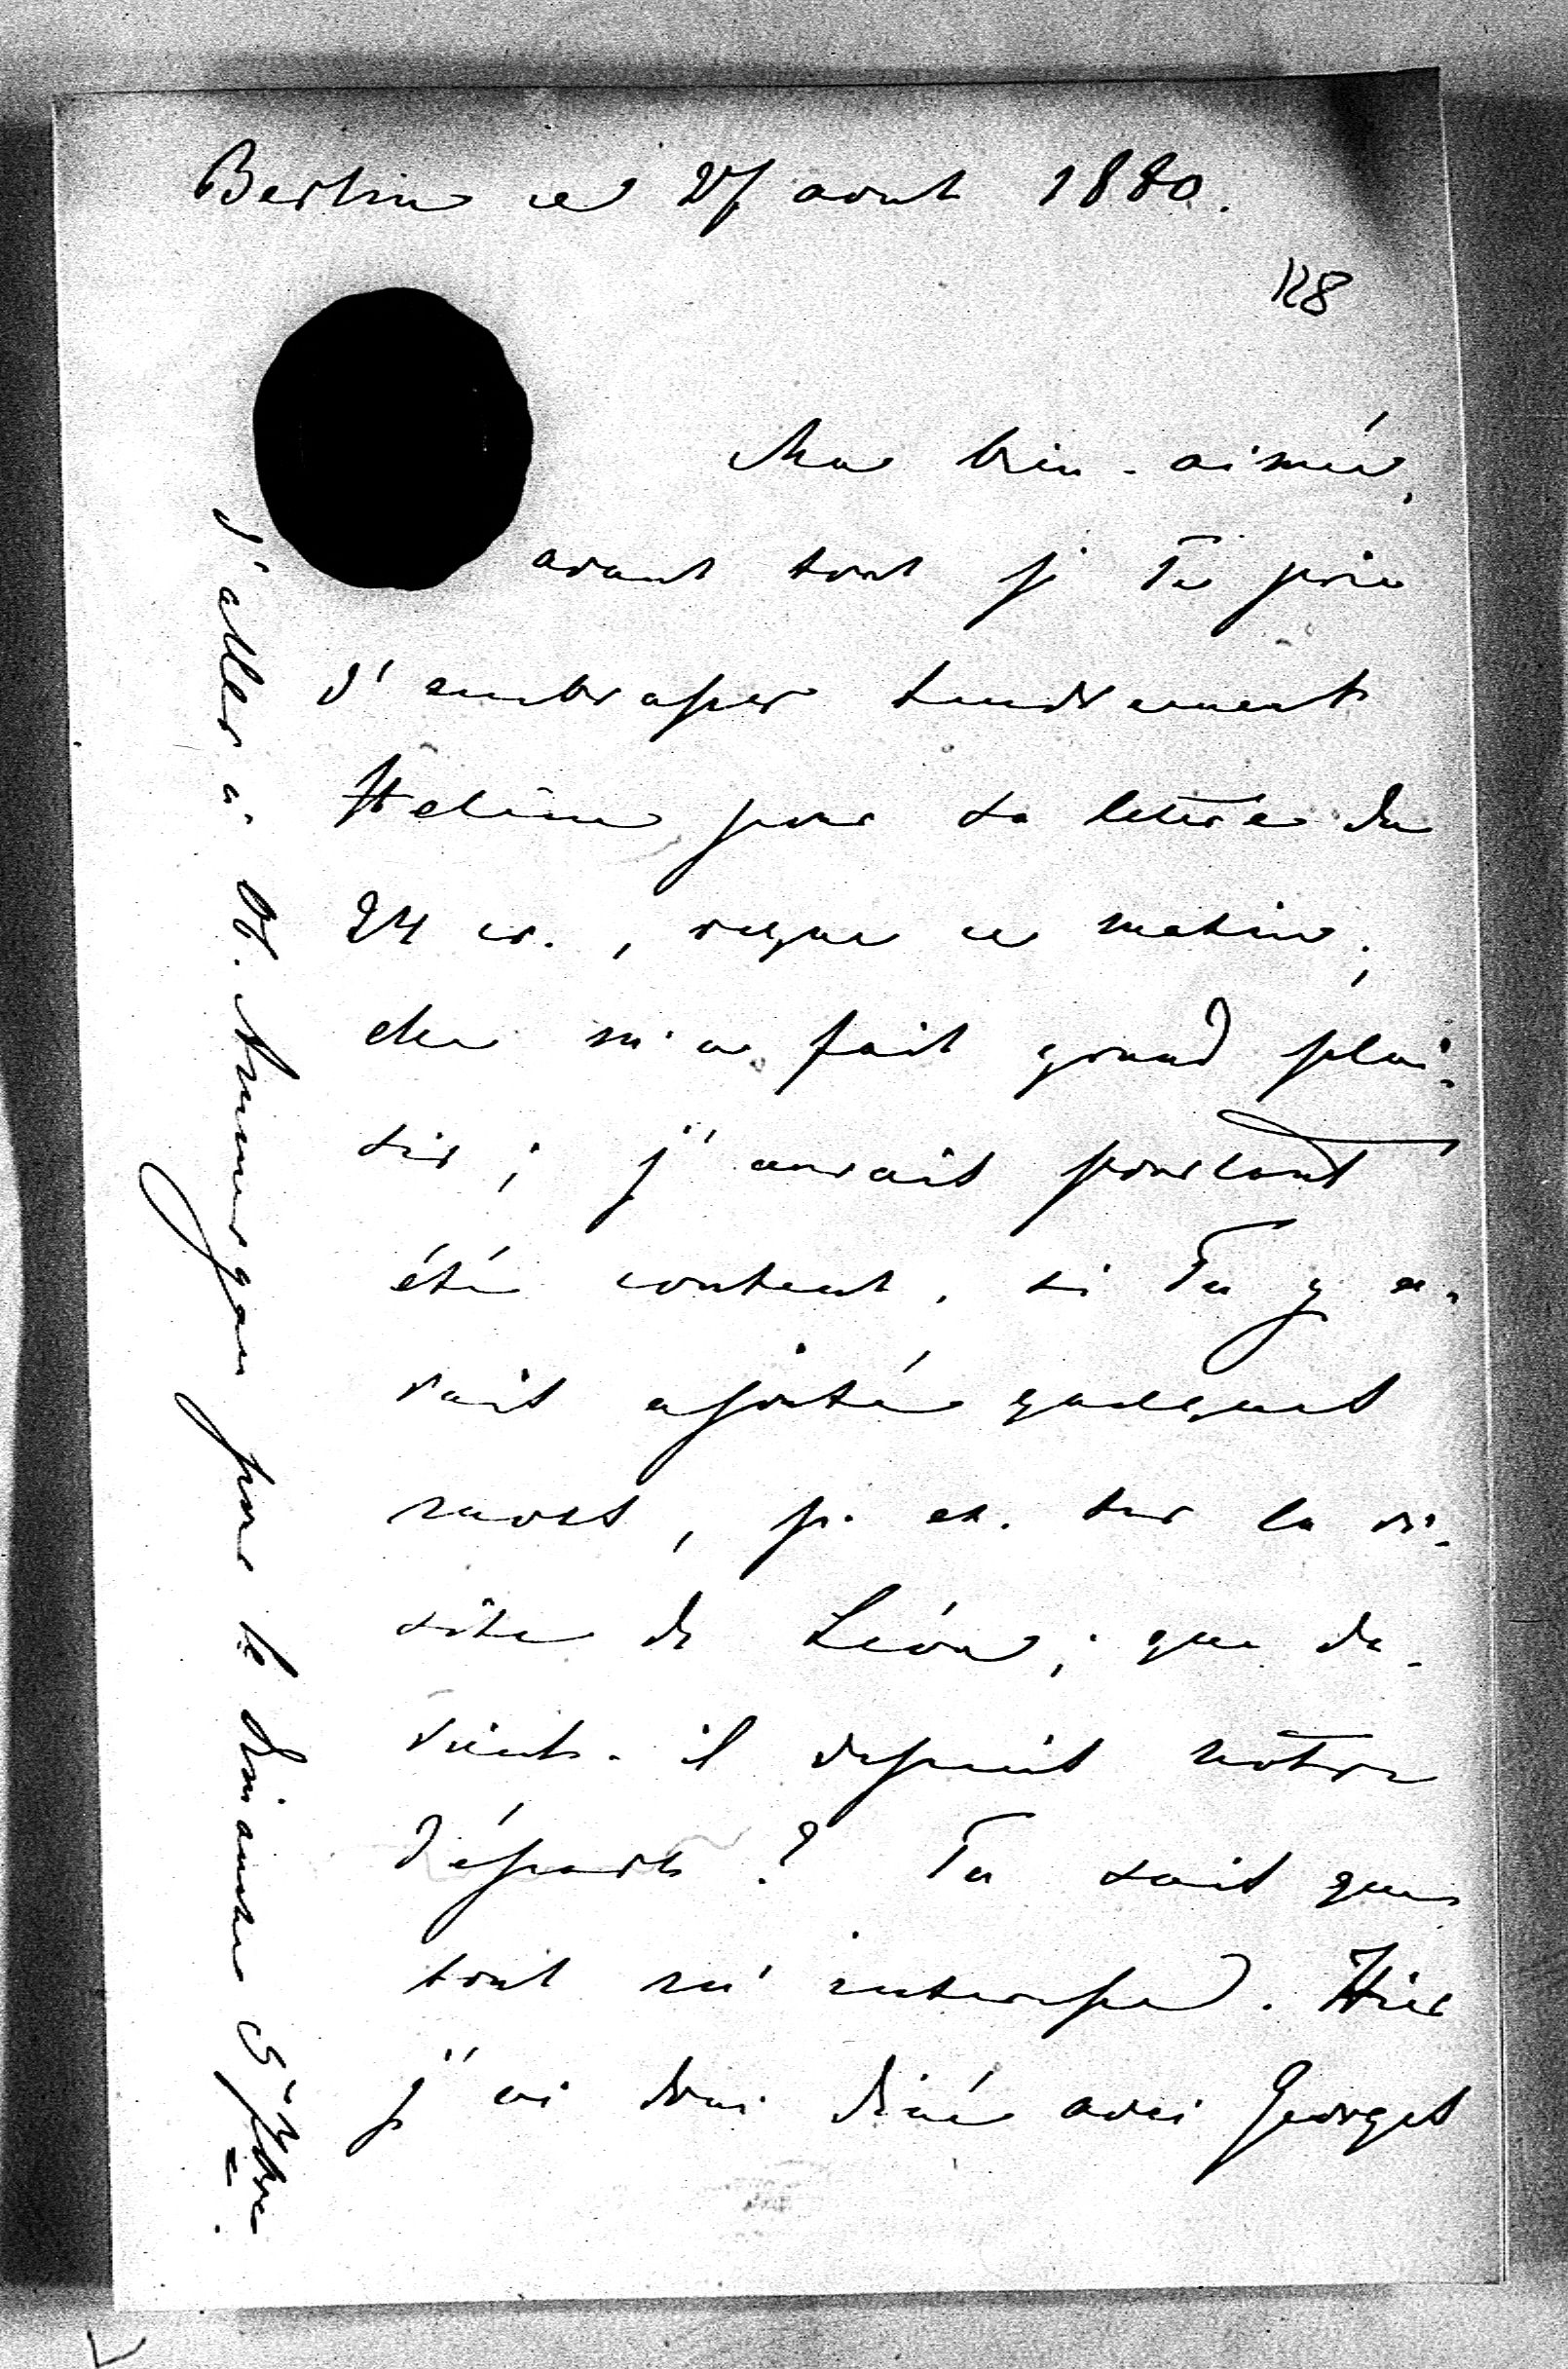 Berlin ce 27 aout 1880.
128
Ma bien-aimée,
avant tout je Te prie
d'embrasser tendrement
Helène pour sa lettre du
24 cr., reçue ce matin;
elle m'a fait grand plai-
sir; j'aurais pourtant
été content, si Tu y a-
vais ajouté quelques
mots, p. ex. sur la vi-
site de Léon; que de-
vient-il depuis notre
départ? Tu sais que
tout m'interesse. Hier
j'ai donc diné avec Georges
d'aller à Ob. Ammergau pour le Dimanche 5 7bre.